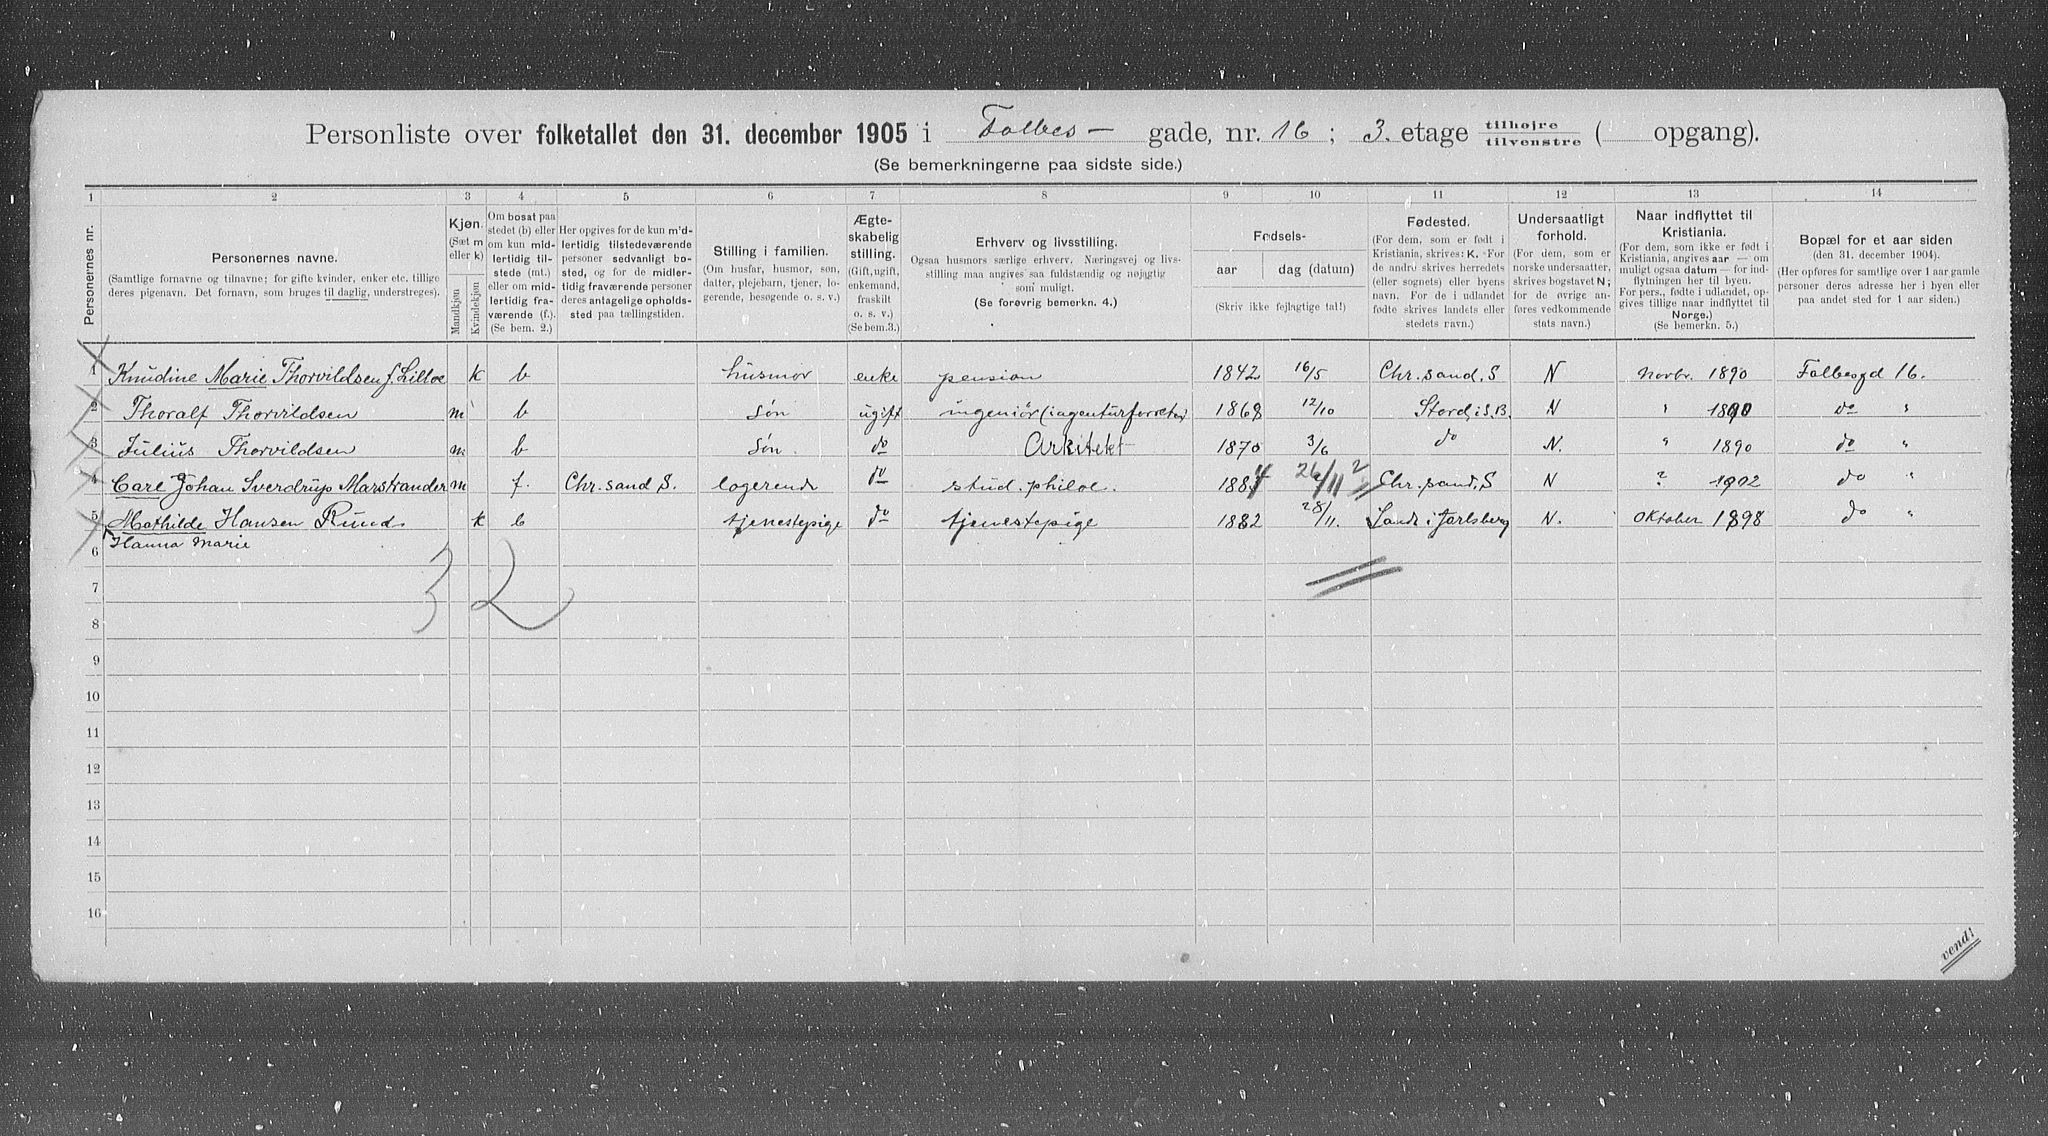 Personliste over folketallet den 31. december 1905 i Falbes – gade, nr. 16 ; 3. etage tilhøjre tilvenstre ( opgang).
(Se bemerkningerne paa sidste side.)
1 2 3 4 5 6 7 8 9 10 11 12 13 14
Personernes nr.
Personernes navne.
(Samtlige fornavne og tilnavne; for gifte kvinder, enker etc. tillige
deres pigenavn. Det fornavn, som bruges til daglig, understreges).
Kjøn.
(Sæt m
eller k)
Mandkjøn
Kvindekjøn
Om bosat paa
stedet (b) eller
om kun mid-
lertidig til-
stede (mt.)
eller om mid-
lertidig fra-
værende (f.).
(Se bem. 2.)
Her opgives for de kun mid-
lertidig tilstedeværende
personer sedvanligt bo-
sted, og for de midler-
tidig fraværende personer
deres antagelige opholds-
sted paa tællingstiden.
Stilling i familien.
(Om husfar, husmor, søn,
datter, plejebarn, tjener, lo-
gerende, besøgende o. s. v.)
Ægte-
skabelig
stilling.
(Gift, ugift,
enkemand,
fraskilt
o. s. v.)
(Se bem.3.)
Erhverv og livsstilling.
Ogsaa husmors særlige erhverv. Næringsvej og livs-
stilling maa angives saa fuldstændig og nøjagtig
som muligt.
(Se forøvrig bemerkn. 4.)
Fødsels-
aar
dag (datum)
(Skriv ikke fejlagtige tal!)
Fødested.
(For dem, som er født i
Kristiania, skrives: K. For
de andre skrives herredets
(eller sognets) eller byens
navn. For de i udlandet
fødte skrives landets eller
stedets navn.)
Undersaatligt
forhold.
(For dem, som er
norske undersaatter,
skrives bogstavet N;
for de øvrige an-
føres vedkommende
stats navn.)
Naar indflyttet til
Kristiania.
(For dem, som ikke er født i
Kristiania, angives aar — om
muligt ogsaa datum — for ind-
flytningen her til byen.
For pers., fødte i udlandet, op-
gives tillige naar indflyttet til
Norge.)
(Se bemerkn. 5.)
Bopæl for et aar siden
(den 31. december 1904).
(Her opføres for samtlige over 1 aar gamle
personer deres adresse her i byen eller
paa andet sted for 1 aar siden.)
1 Knudine Marie Thorvildsen f. Lilloe k b husmor enke pension 1842 16/5 Chr.sand. S N Novbr. 1890 Falbesgd 16.
2 Thoralf Thorvildsen m b søn ugift ingeniør (agenturforretn) 1868 12/10 Stord i S.B. N " 1890 do "
3 Julius Thorvildsen m b søn. do Arkitekt 1870 3/6 do N. " 1890 do "
4 Carl Johan Sverdrup Marstrander m f. Chr. sand S. logerende do stud. philol. 26/11 Chr. sand. S N ? 1902 do "
5 Mathilde Hansen Ruud. k b tjenestepige do tjenestepige 1882 28/11. Sande i Jarlsberg N. Oktober 1898 do "
6 Hanna Marie
32
7
8
9
10
11
12
13
14
15
16
vend!